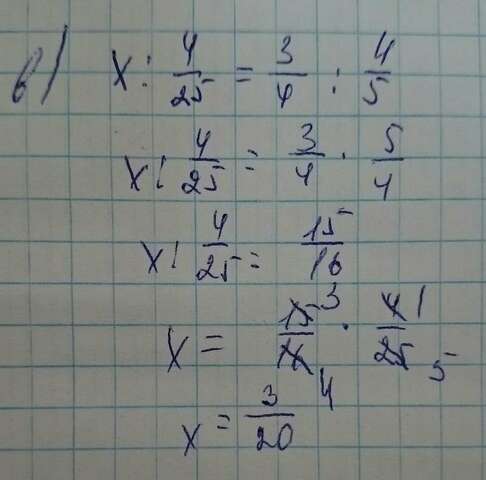 в) x : 4/25 = 3/4 : 4/5
x : 4/25 = 3/4 · 5/4
x : 4/25 = 15/16
x = 15/16 · 4/25 3 1 4 5
x = 3/20